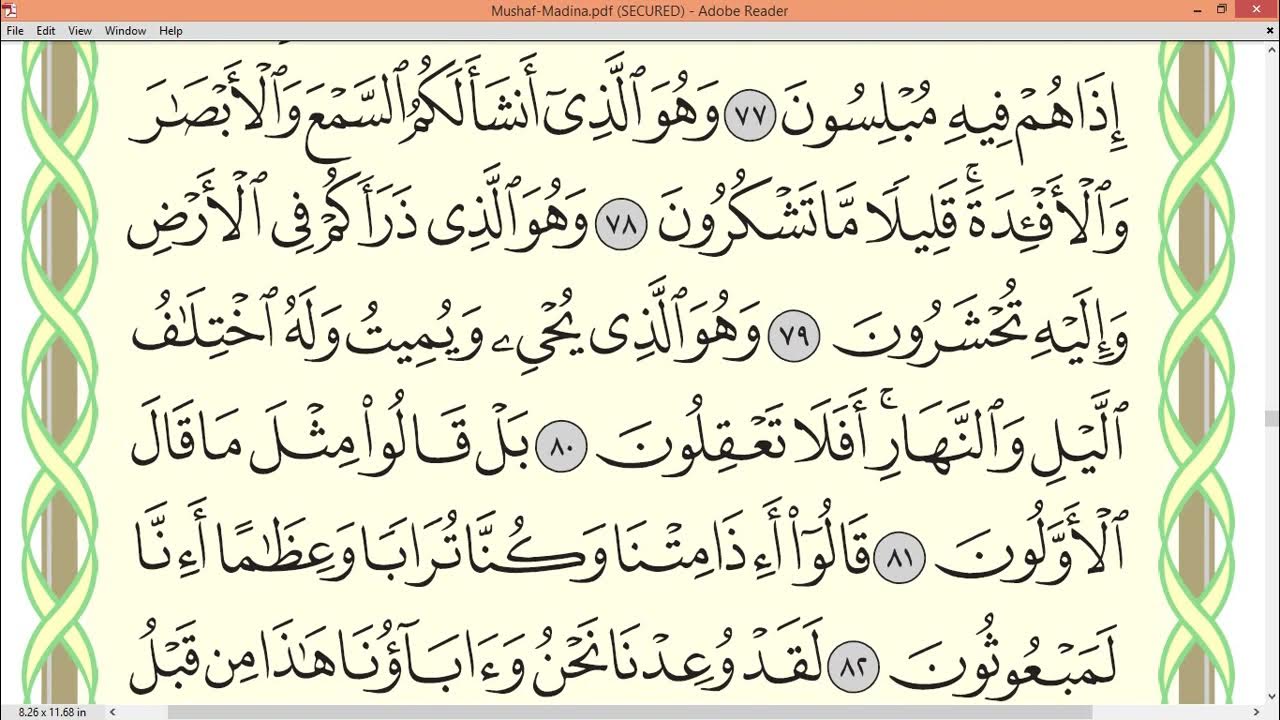 Mushaf-Madina.pdf (SECURED) - Adobe Reader
File Edit View Window Help
إِذَا هُمْ فِيهِ مُبْلِسُونَ ٧٧ وَهُوَ ٱلَّذِىٓ أَنشَأَ لَكُمُ ٱلسَّمْعَ وَٱلْأَبْصَـٰرَ
وَٱلْأَفْـِٔدَةَ ۚ قَلِيلًا مَّا تَشْكُرُونَ ٧٨ وَهُوَ ٱلَّذِى ذَرَأَكُمْ فِى ٱلْأَرْضِ
وَإِلَيْهِ تُحْشَرُونَ ٧٩ وَهُوَ ٱلَّذِى يُحْىِۦ وَيُمِيتُ وَلَهُ ٱخْتِلَـٰفُ
ٱلَّيْلِ وَٱلنَّهَارِ ۚ أَفَلَا تَعْقِلُونَ ٨٠ بَلْ قَالُوا۟ مِثْلَ مَا قَالَ
ٱلْأَوَّلُونَ ٨١ قَالُوٓا۟ أَءِذَا مِتْنَا وَكُنَّا تُرَابًا وَعِظَـٰمًا أَءِنَّا
لَمَبْعُوثُونَ ٨٢ لَقَدْ وُعِدْنَا نَحْنُ وَءَابَآؤُنَا هَـٰذَا مِن قَبْلُ
8.26 x 11.68 in